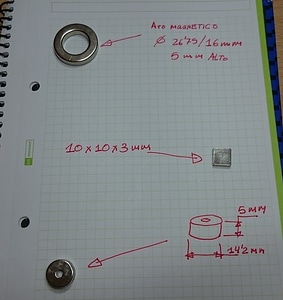 Aro magnetico
Ø 26'75/16mm
5mm Alto
10x10x3mm
5mm
14'2mm